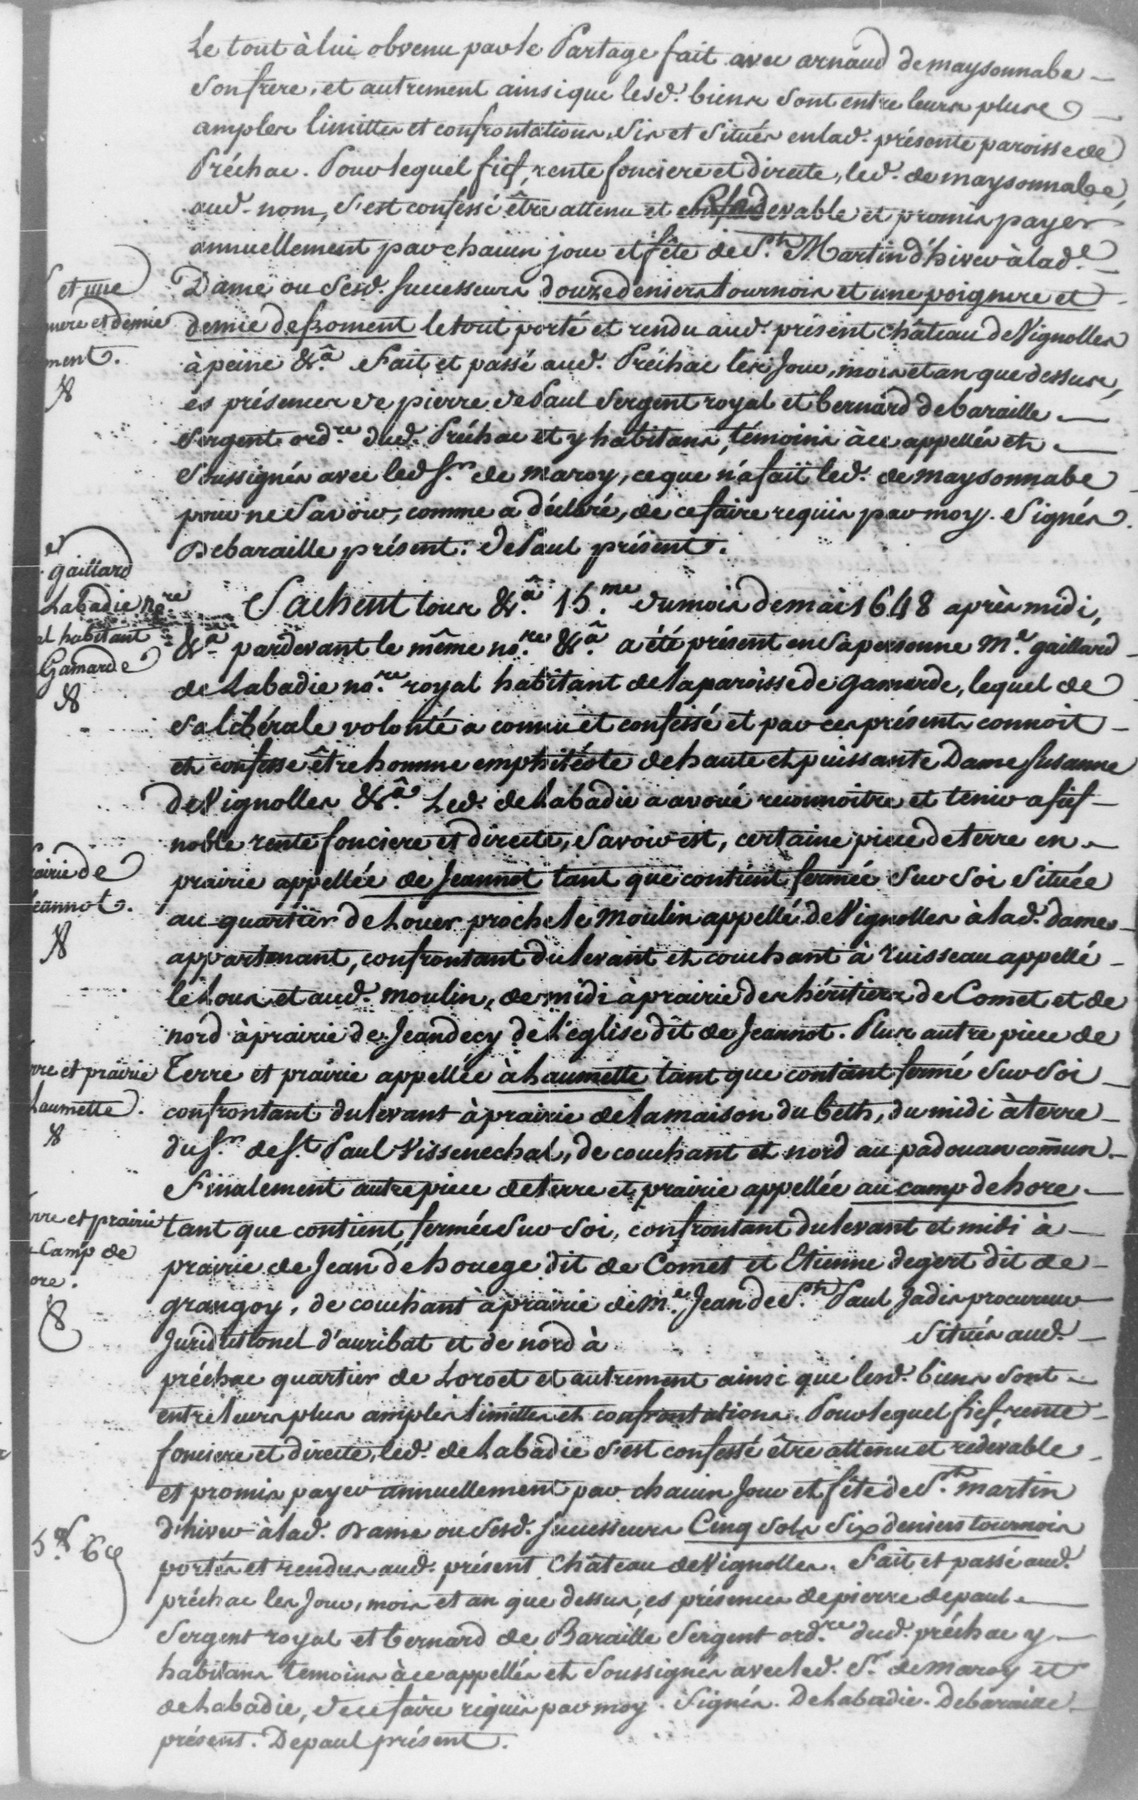 Le tout à lui obvenu par le Partage fait avec arnaud de maysonnabe
Son frere, et autrement ainsi que lesd. biens sont entre leurs plus
amples limittes et confrontations, Sis et Situés en lad. présente paroisse de
Préchac. Pour lequel fief, rente fonciere et directe, led. de maysonnabe,
aud. nom, s'est confessé être attenu et redevable et promis payer
annuellement par chacun jour et fête de St. Martin d'hiver à lad.
Dame ou Sesd. successeurs douze deniers tournois et une poignere et
demie de froment le tout porté et rendu aud. présent château de Vignolles
à peine &a. Fait et passé aud. Préchac les Jour, mois et an que dessus,
es présences de pierre de Paul Sergent royal et bernard de baraille
Sergent ordre. dud. Préchac et y habitans, témoins à ce appellés et
Soussignés avec led. Sr. de maroy, ce que n'a fait led. de maysonnabe
pour ne Savoir, comme a déclaré, de ce faire requis par moy. Signés.
Debaraille présent. de Paul présent.
Sachent tous &a. 15.me du mois de mai 1648 après midi,
&a. pardevant le même nore. &a. a été présent en Sa personne Me. gaillard
de Labadie nore. royal habitant de la paroisse de gamarde, lequel de
Sa libérale volonté a connu et confessé et par ces présents connoit
et confesse être homme emphitéote de haute et puissante Dame Susanne
de Vignolles &a. Led. de Labadie a avoué reconnoitre et tenir a fief
noble rente fonciere et directe, Savoir est, certaine piece de terre en
prairie appellée de Jeannot tant que contient fermée Sur Soi Située
au quartier de Louer proche le Moulin appellé de Vignolles à lad. dame
appartenant, confrontant du levant et couchant à ruisseau appellé
le Lous et aud. moulin, de midi à prairie des héritiers de Comet et de
nord à prairie de Jeandecy de l'eglise dit de Jeannot. Plus autre piece de
Terre et prairie appellée à haumette tant que contient fermé Sur Soi
confrontant du levant à prairie de la maison du beth, du midi à terre
du Sr. de St. Paul Vissenechal, de couchant et nord au padouan com̄un.
Finalement autre piece de terre et prairie appellée au camp de hore
tant que contient, fermée Sur Soi, confrontant du levant et midi à
prairie de Jean de houege dit de Comet et Etienne degert dit de
grangoy, de couchant à prairie de Me. Jean de St. Paul Jadis procureur
Juridictionel d'auribat et de nord à Situés aud.
préchac quartier de Loroet et autrement ainsi que lesd. biens sont
entre leurs plus amples limittes et confrontations. Pour lequel fief, rente
fonciere et directe, led. de Labadie s'est confessé être attenu et redevable
et promis payer annuellement par chacun Jour et fête de St. martin
d'hiver à lad. Dame ou Sesd. successeurs Cinq Sols Six deniers tournois
portés et rendus aud. présent Château de Vignolles. Fait et passé aud.
préchac les Jour, mois et an que dessus, es présences de pierre de paul
Sergent royal et bernard de Baraille Sergent ordre. dud. préchac y
habitans temoins à ce appellés et Soussignés avec led. Sr. de maroy et
de Labadie, de ce faire requis par moy. Signés. De Labadie. Debaraille
présent. Depaul présent.
s et une
nere et demie
ment.
et
gaillard
Labadie nore
al habitant
Gamarde
rairie de
Jeannot.
rre et prairie
haumette.
rre et prairie
Camp de
ore.
5s. 6d